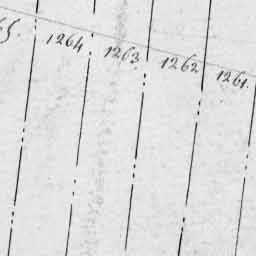 1264. 1263. 1262 1261.